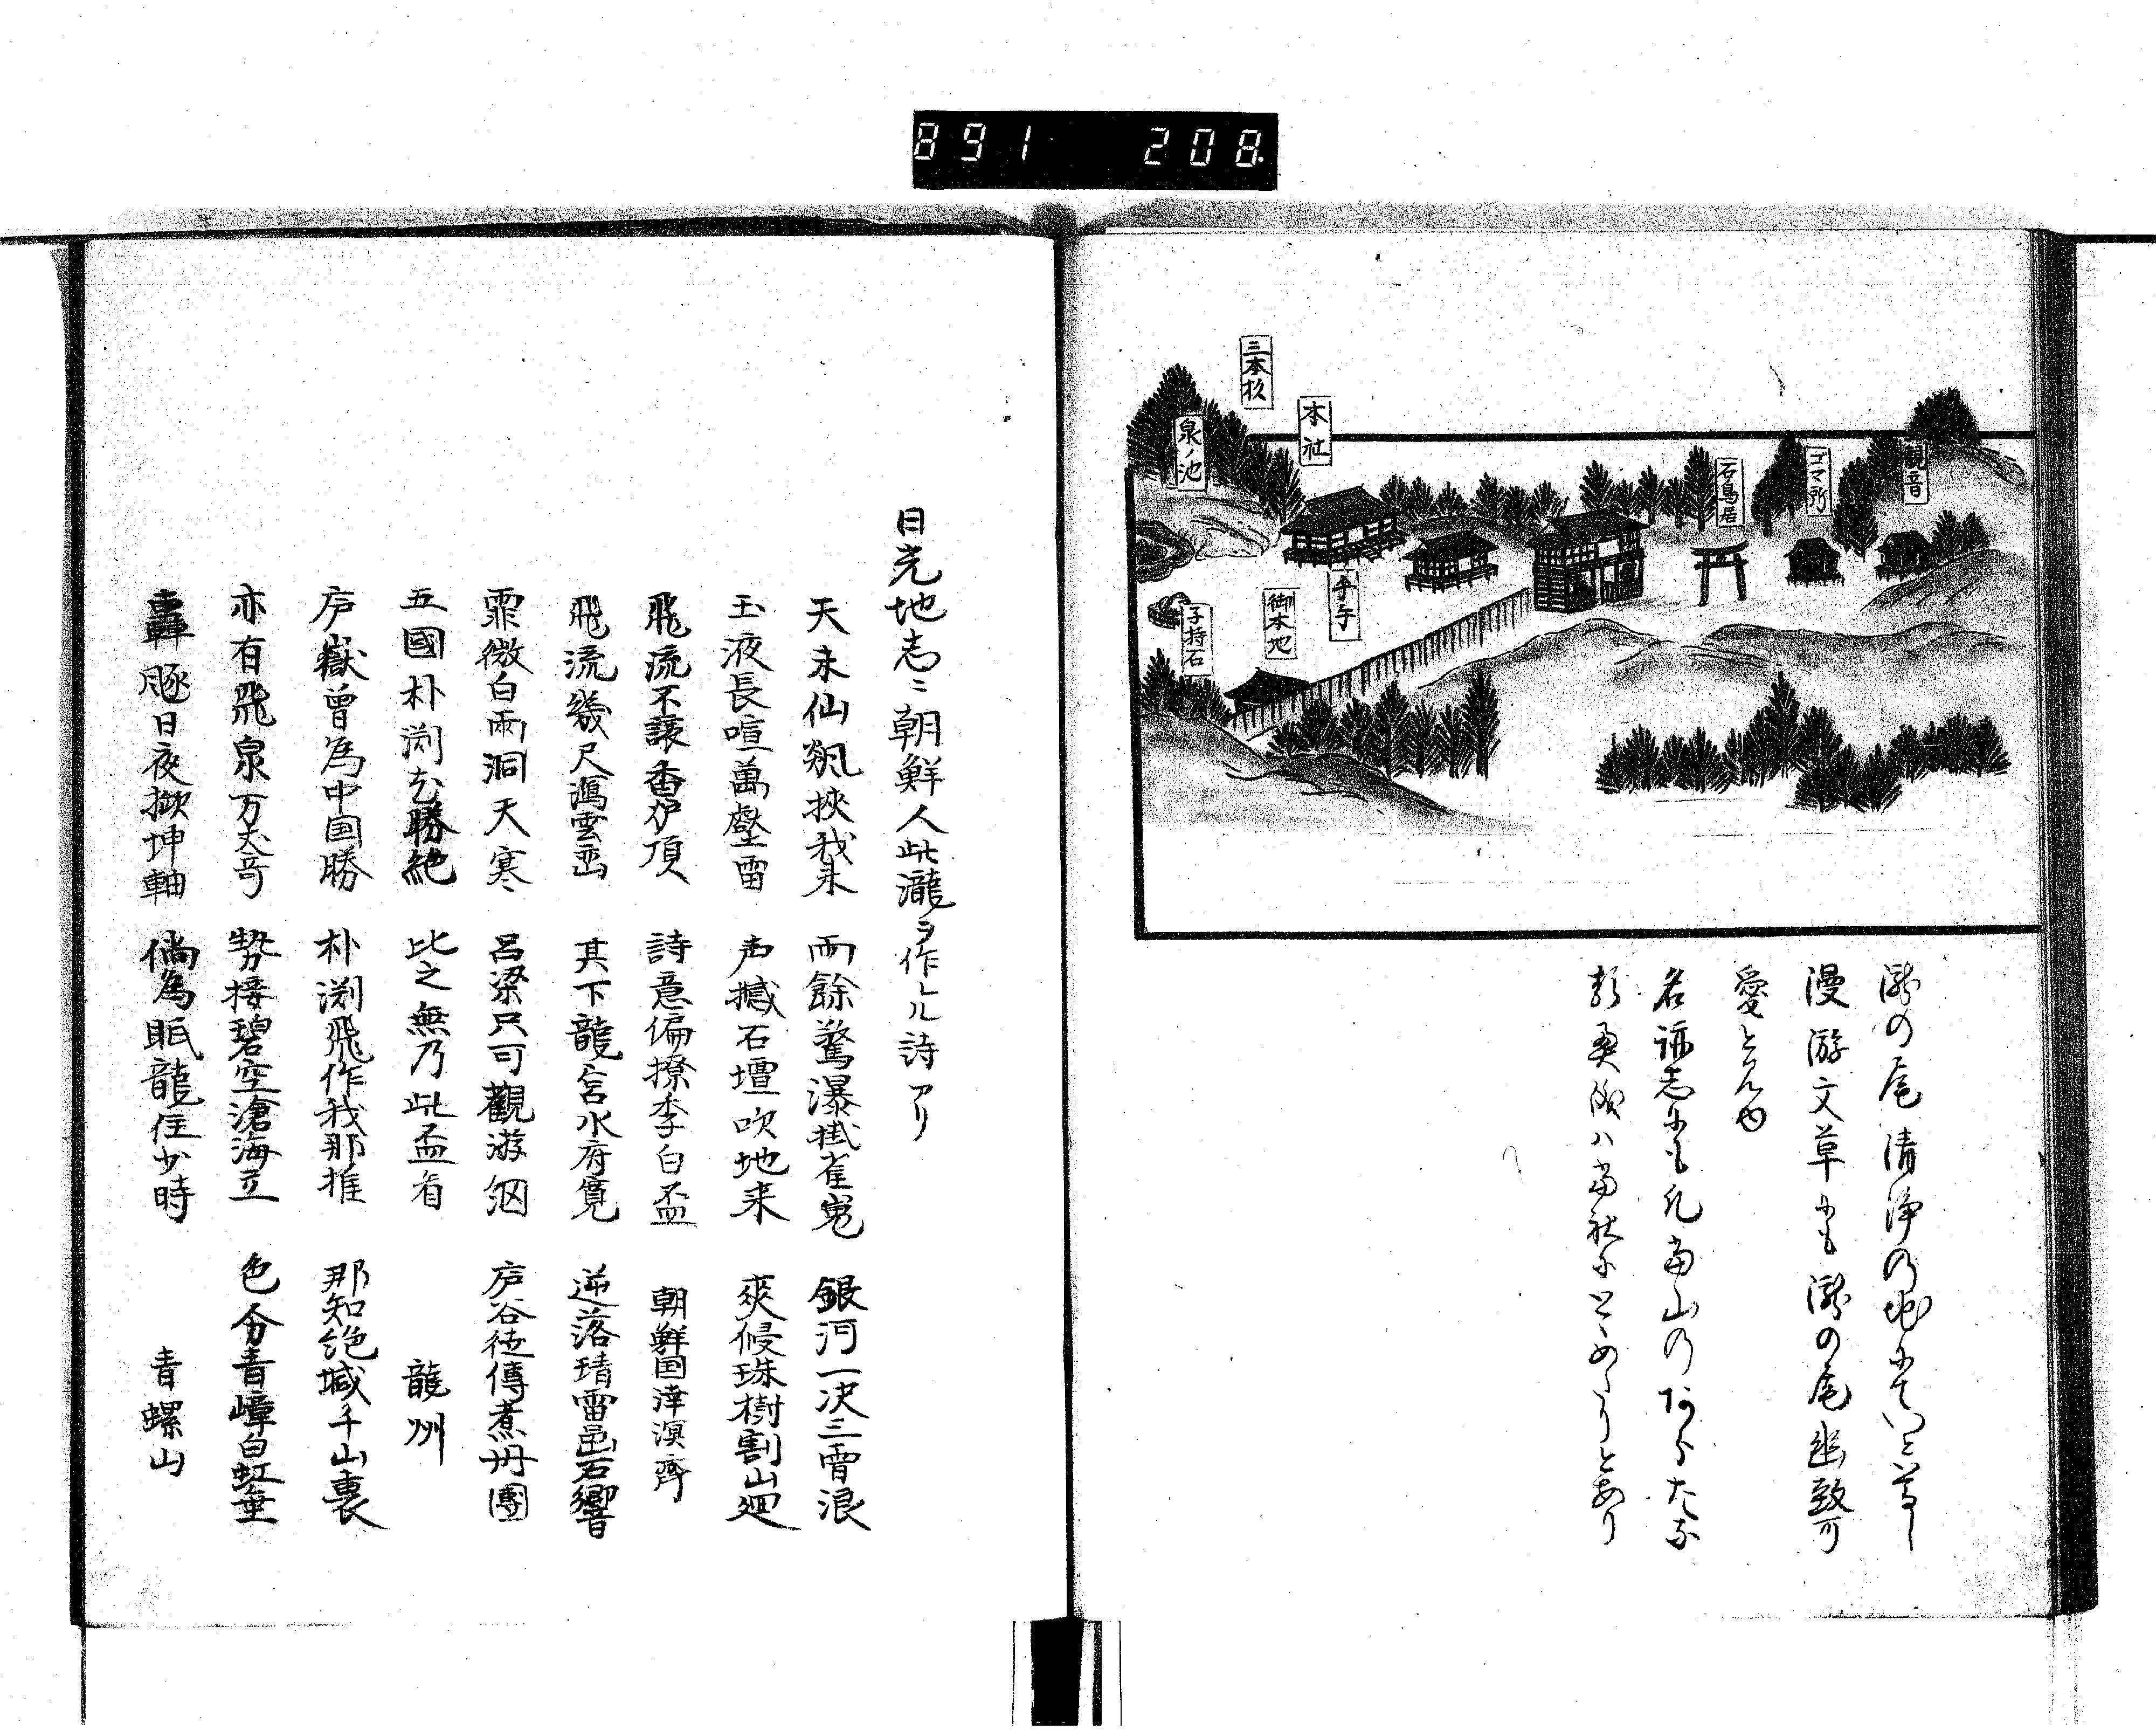 891 208
三本杦
本社
泉ノ池
石鳥居
ゴマ所
観音
子持石
御本地
滝の尾清浄の地にていと尊し
漫游文草にも滝の尾幽致可
愛とんや
名跡志にも凡当山の
ハ当社にとゝめたりとあり
日光地志ニ朝鮮人此瀧ヲ作レル詩アリ
天末仙飆挾我来 雨餘驚瀑掛崔嵬 銀河一決三霄浪
玉液長喧萬壑雷 声撼石壇吹地来 爽侵珠樹割山廻
飛流不譲香炉頂 詩意偏撩李白盃 朝鮮国涬溟齊
飛流幾尺瀉雲巒 其下龍宮水府寛 逆落晴雷嵒石響
霏微白雨洞天寒 呂梁只可觀游 庐谷徒傳煮丹團
五國朴渕勝絶 比之無乃此盃看 龍州
庐嶽曾為中国勝 朴渕飛作我那推 那知絶域千山裏
亦有飛泉万丈奇 勢接碧空滄海立 色分青嶂白虹垂
轟豗日夜掀坤軸 倘為眠龍住少時 青螺山